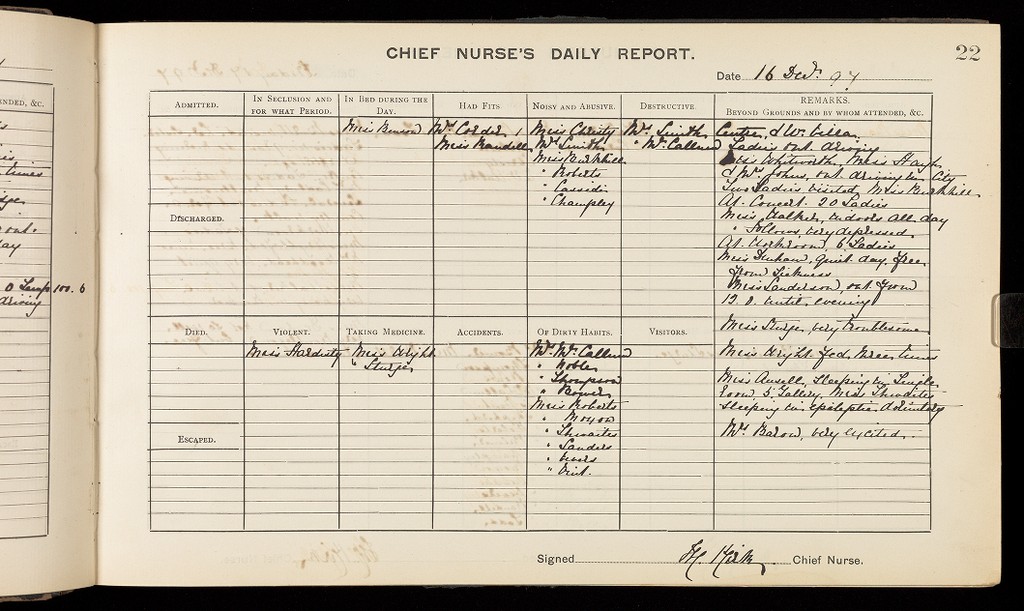 22
CHIEF NURSE'S DAILY REPORT.
Date 16 Decr. 97
ENDED, &C.
times
0 100. 0
driving
ADMITTED.
IN SECLUSION AND
FOR WHAT PERIOD.
IN BED DURING THE
DAY.
Miss Benson
HAD FITS
Mrs Corder 1
Miss Randell
NOISY AND ABUSIVE.
Miss Christy
Mrs Smith
Miss Burkhill
" Roberts
" Cassidi
" Champley
DESTRUCTIVE.
Mrs Smith
" McCallum
REMARKS.
BEYOND GROUNDS AND BY WHOM ATTENDED, &C.
Centre, & W. Villa
Ladies out driving
Miss Whitworth, Miss
& Mrs Johns, out driving in City
Two Ladies visited Miss Burkhill
At Concert 20 Ladies
Miss Walker, indoors all day
" Fellows, very depressed
At Workroom, 6 Ladies
Miss Quiet day, free
from Sickness
Miss Sanderson, out from
12.0 until evening
Miss Sturge, very troublesome
Miss Wright fed three times
Miss Ansell, Sleeping in Single
room 5 Gallery, Miss Thwaites
Sleeping in epileptic dormitory
Mrs Barow, very excited.
DISCHARGED.
DIED.
VIOLENT.
Miss Hardisty
TAKING MEDICINE.
Miss Wright
" Sturge
ACCIDENTS.
OF DIRTY HABITS.
Mrs McCallum
" Nobles
" Thompson
" Bowers
Miss Roberts
" Moxon
" Thwaites
" Sanders
" Vevers
" Dent
VISITORS.
ESCAPED.
Signed H. Kirk Chief Nurse.